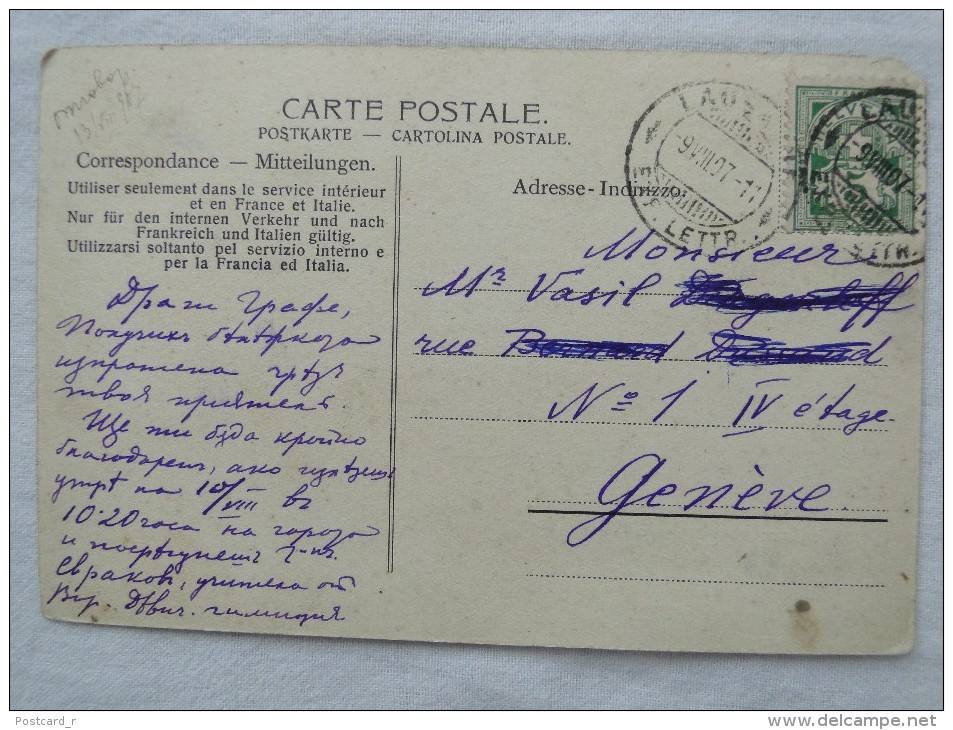 CARTE POSTALE.
POSTKARTE — CARTOLINA POSTALE.
Correspondance — Mitteilungen.
Utiliser seulement dans le service intérieur
et en France et Italie.
Nur für den internen Verkehr und nach
Frankreich und Italien gültig.
Utilizzarsi soltanto pel servizio interno e
per la Francia ed Italia.
Adresse - Indirizzo
-9VIII07-11
EXP. LETTR.
-9VIII07-11
Драги Графе,
Получихъ
изпратена чрѣзъ
твоя приятелъ.
Ще ти бѫда крайно
благодаренъ, ако излѣзешъ
утрѣ на 10/VIII въ
10·20 часа на гарата
и посрѣщнешъ г-нъ
учителка отъ
Вар. Дѣвич. гимназия
Monsieur
Mr Vasil
rue
No 1 IV étage.
Genève.
Postcard_r
www.delcampe.net